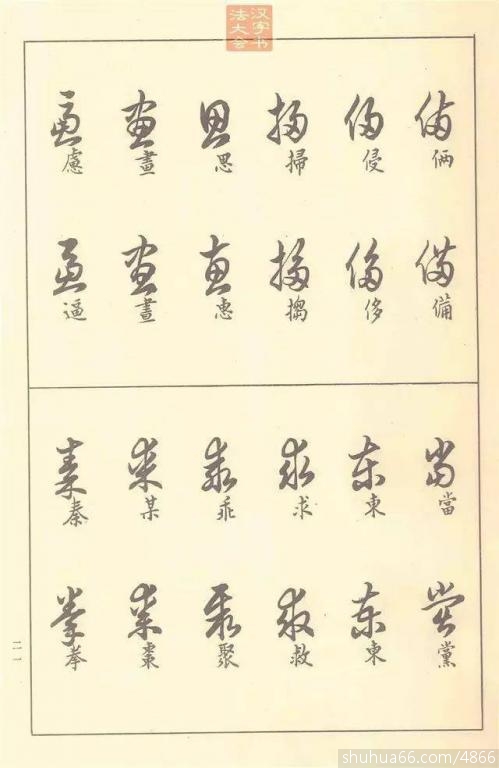 汉字书
法大会
俩 侵 掃 思 畫 慮
備 侈 搗 惠 畫 逼
當 東 求 乖 某 秦
黨 東 救 聚 棗 拳
二一
shuhua66.com/4866